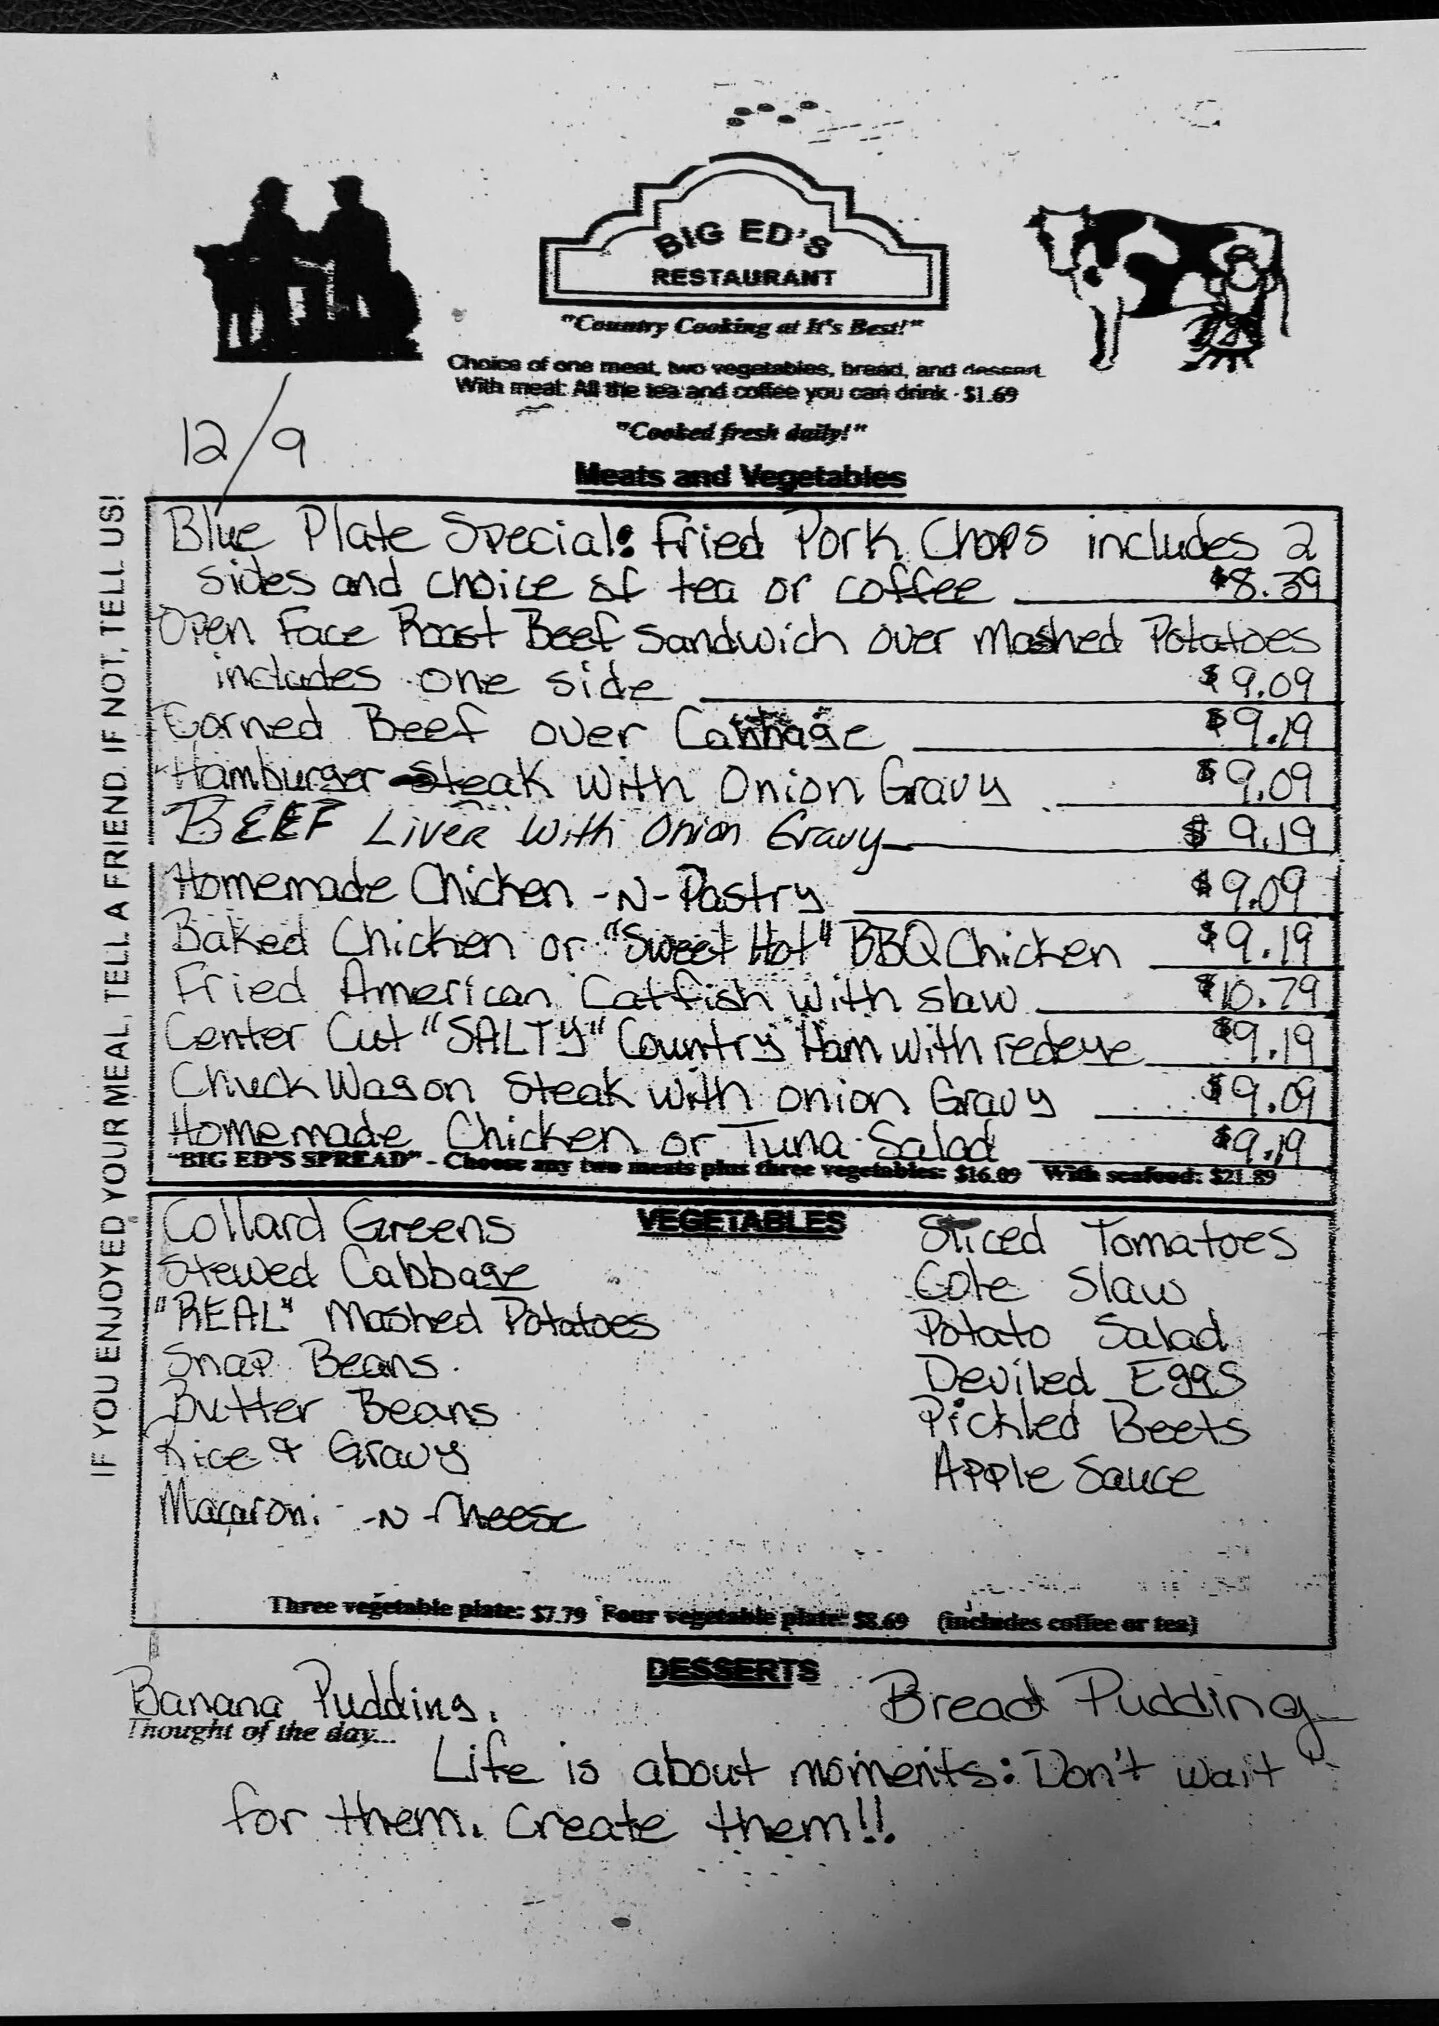 BIG ED'S
RESTAURANT
"Country Cooking at It's Best!"
Choice of one meat, two vegetables, bread, and dessert.
With meat: All the tea and coffee you can drink - $1.69
12/9
"Cooked fresh daily!"
Meats and Vegetables
Blue Plate Special: Fried Pork Chops includes 2
sides and choice of tea or coffee $8.39
Open Face Roast Beef Sandwich over Mashed Potatoes
includes one side $9.09
Corned Beef over Cabbage $9.19
Hamburger Steak with Onion Gravy $9.09
BEEF Liver with Onion Gravy $9.19
Homemade Chicken -N- Pastry $9.09
Baked Chicken or "Sweet Hot" BBQ Chicken $9.19
Fried American Catfish with slaw $10.79
Center Cut "SALTY" Country Ham with redeye $9.19
Chuck Wagon Steak with onion Gravy $9.09
Homemade Chicken or Tuna Salad $9.19
"BIG ED'S SPREAD" - Choose any two meats plus three vegetables: $16.09 With seafood: $21.89
VEGETABLES
Collard Greens
Stewed Cabbage
"REAL" Mashed Potatoes
Snap Beans.
Butter Beans
Rice & Gravy
Macaroni -N- Cheese
Sliced Tomatoes
Cole Slaw
Potato Salad
Deviled Eggs
Pickled Beets
Apple Sauce
Three vegetable plate: $7.79 Four vegetable plate: $8.69 (includes coffee or tea)
DESSERTS
Banana Pudding. Bread Pudding
Thought of the day...
Life is about moments: Don't wait
for them. Create them!!
IF YOU ENJOYED YOUR MEAL, TELL A FRIEND. IF NOT, TELL US!